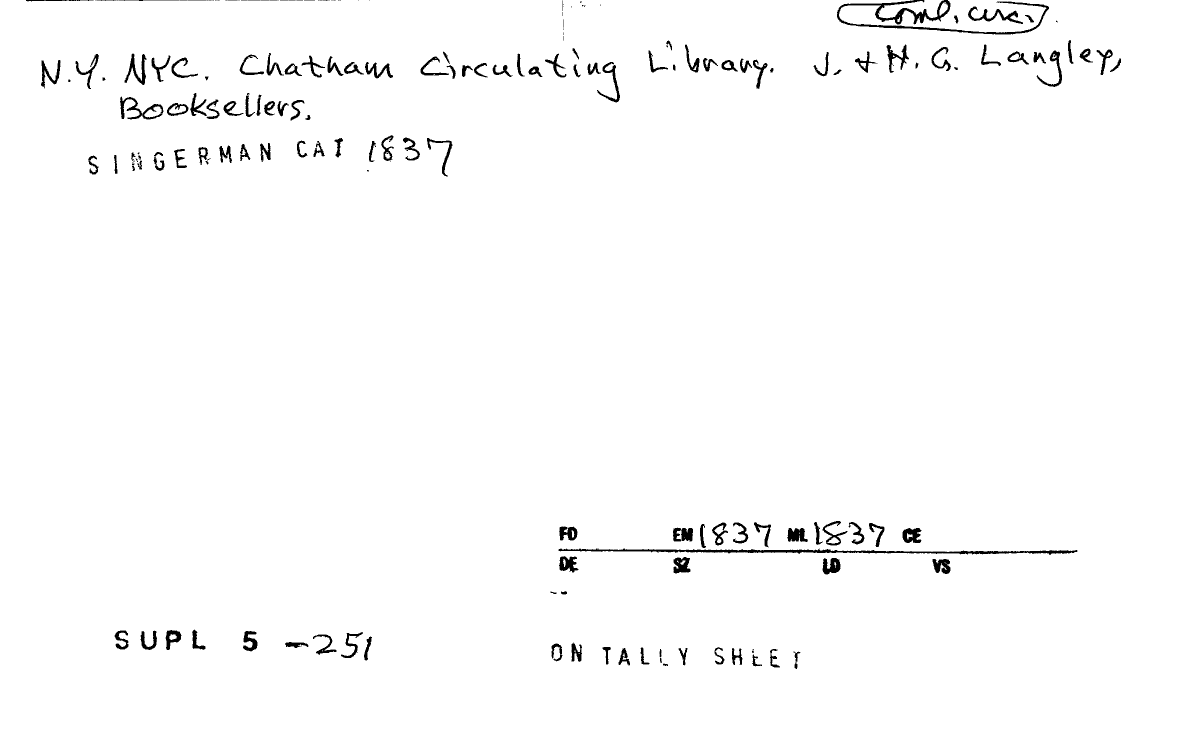 Coml. circ.
N.Y. NYC. Chatham Circulating Library. J. + H. G. Langley,
Booksellers.
SINGERMAN CAT 1837
FD EM 1837 ML 1837 CE
DE SZ LD VS
SUPL 5 -251
ON TALLY SHEET